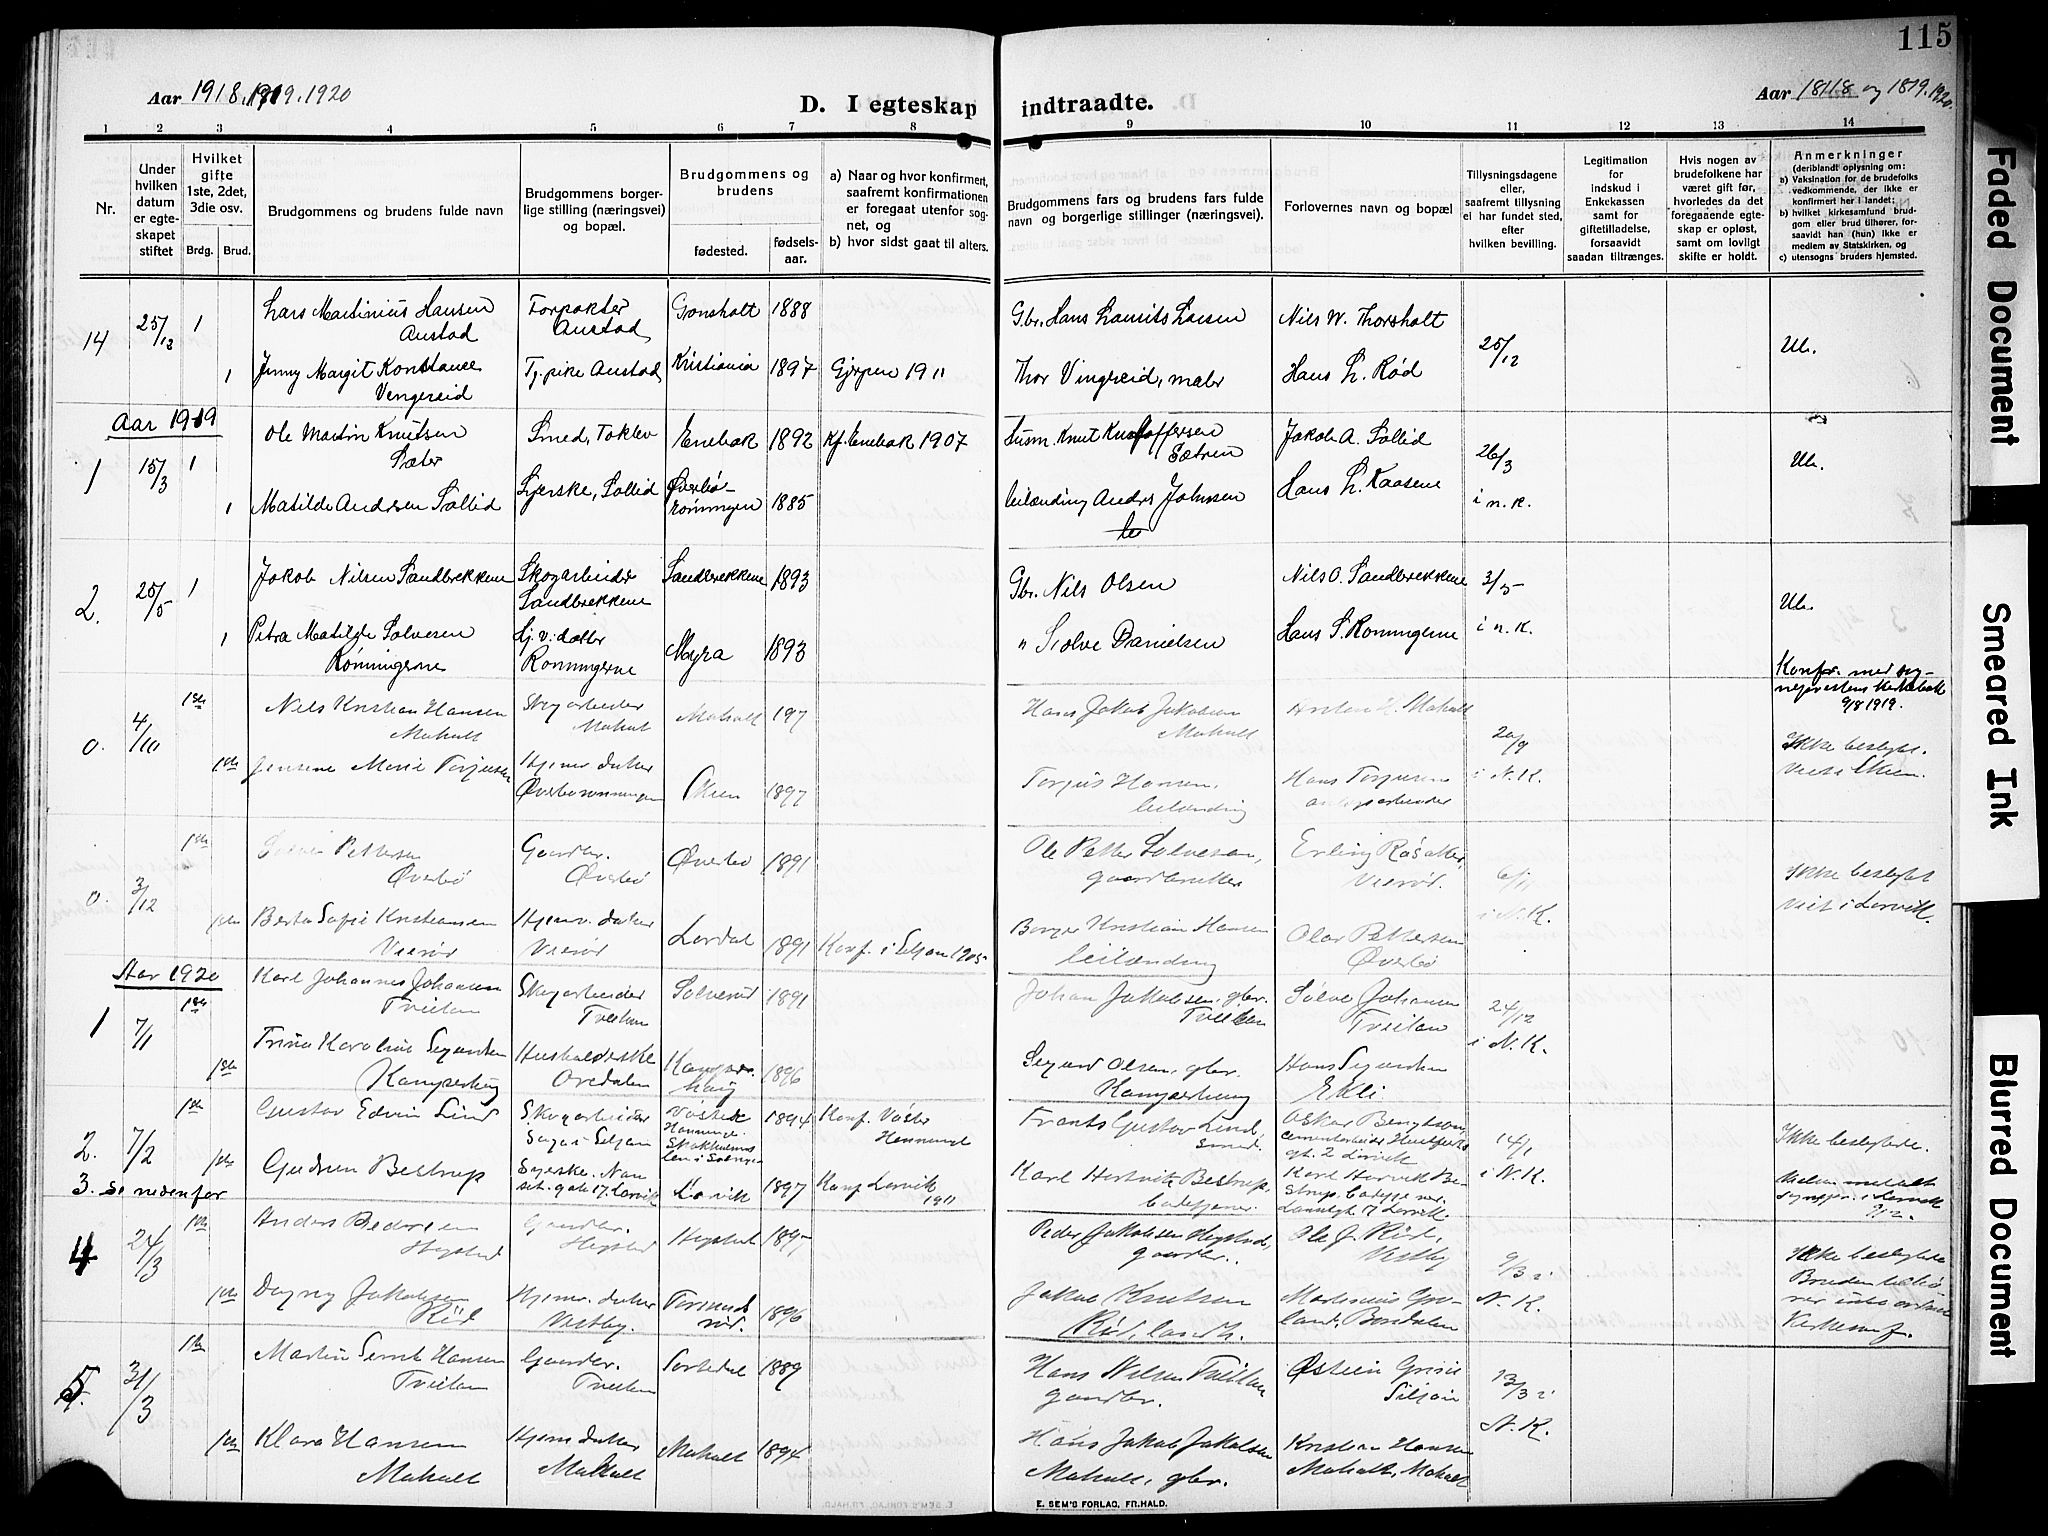 115
Aar 1918.1919.1920
D. I egteskap indtraadte.
Aar 1818 og 1819. 1920.
1 2 3 4 5 6 7 8 9 10 11 12 13 14
Nr.
Under hvilken datum er egteskapet stiftet
Hvilket gifte 1ste, 2det, 3die osv.
Brdg. Brud.
Brudgommens og brudens fulde navn
Brudgommens borgerlige stilling (næringsvei) og bopæl.
Brudgommens og brudens
fødested. fødselsaar.
a) Naar og hvor konfirmert, saafremt konfirmationen er foregaat utenfor sognet, og
b) hvor sidst gaat til alters.
Brudgommens fars og brudens fars fulde navn og borgerlige stillinger (næringsvei).
Forlovernes navn og bopæl
Tillysningsdagene eller, saafremt tillysning ei har fundet sted, efter hvilken bevilling.
Legitimation for indskud i Enkekassen samt for giftetilladelse, forsaavidt saadan tiltrænges.
Hvis nogen av brudefolkene har været gift før, hvorledes da det foregaaende egteskap er opløst, samt om lovligt skifte er holdt.
Anmerkninger
(deriblandt oplysning om:
a) Vaksination for de brudefolks vedkommende, der ikke er konfirmert her i landet;
b) hvilket kirkesamfund brudgom eller brud tilhører, forsaavidt han (hun) ikke er medlem av Statskirken, og
c) utensogns bruders hjemsted.
14 25/12 1 Lars Martinius Hansen Austad Forpakter Austad Gronsholt 1888 Gbr. Hans Laurits Larsen Nils W. Thorsholt 25/12 Ub.
1 Jenny Margit Konstance Vengereid Tj.pike Austad Kristiania 1897 Gjerpen 1911 Thor Vingereid, maler Hans L. Rød
Aar 1919
1 15/3 1 Ole Martin Knutsen Sæter Smed, Toklev Enebak 1892 Kf. Enebak 1907 Husm. Knut Kristoffersen Sætren Jakob A. Sollid 26/3 i n. K. Ub.
1 Matilde Andersen Sollid Syerske, Sollid Øverbø-rønningen 1885 Leilænding Anders Johnsen Hans L. Kaasene
2. 25/5 1 Jakob Nilsen Sandbrekkene Skogarbeider Sandbrekkene Sandbrekkene 1893 Gbr. Nils Olsen Nils O. Sandbrekkene 3/5 i n. K. Ub.
1 Petra Matilde Solvesen Rønningerne Hj. v. datter Ronningerne Myra 1893 " Solve Danielsen Hans S. Ronningerne
0. 4/10 1ste Nils Kristian Hansen Moholt Skogarbeider Moholt Moholt 197 Hans Jakob Jakobsen Moholt Moholt 20/9 i N. K. Konfr. med sognepresten Kirkebok 9/8 1919.
1ste Jensine Marie Torjusen Hjemv. datter Øverbørønningen Skien 1897 Torjus Hansen, leilænding Hans Torjusen Ikke beslegtet. Viet i Skien.
0. 3/12 1ste Solvei Pettersen Øverbø Gaardbr. Øverbø Øverbø 1891 Ole Petter Solvesen, gaardbruker Erling Røsaker, Vierød. 6/11 i N. K. Ikke beslegtet viet i Larvik.
1ste Berta Sofie Kristiansen Vierød Hjemv. datter Vierød Lardal 1891 Konf. i Siljan 1905 Borger Kristian Hansen leilænding Olav Pettersen Øverbø
Aar 1920
1 7/1 1ste Karl Johannes Johansen Tveitan Skogarbeider Tveitan Solverød 1891 Johan Jakobsen, gbr. Tveitan Sølve Johansen Tveitan 24/12 i N. K.
1ste Trina Karoline Sigurdsen Kamperhaug Husholderske Oredalen Kamperhaug 1896 Sigurd Olsen, gbr. Kamperhaug Hans Sigurdsen Ekli
2. 7/2 1ste Gustav Edvin Lind Skogarbeider Siljan 1894 Konf. Väster Hanninge Frants Gustav Lind, smed. Oskar Bengtson, 14/1 i N. K. Ikke beslegtede.
1ste Gudrun Bestrup Syerske. Nansetgate 17. Larvik Larvik 1897 Konf. Larvik 1911 Karl Hartvik Bestrup, Karl Harvik Bestrup
3. se nedenfor
4 24/3 1ste Anders Pedersen Hogstad Gaardbr. Hogstad Hogstad 1897 Peder Jakobsen Hogstad, gaardbr. Ole J. Rød, Vestby 9/3 i N. K. Ikke beslegtede
1ste Dagny Jakobsen Rød Hjemv. datter Vestby. 1896 Jakob Knutsen Rød, landh. Martinius Groland, Bordalen
5. 31/3 1ste Martin Hansen Tveitan Gaardbr. Tveitan Sortedal 1889 Hans Nilsen Tveitan gaardbr. Østein Grini Siljan 13/3 i N. K.
1ste Klara Hansen Moholt Hjemv. datter Moholt Moholt 1894 Hans Jakob Jakobsen Moholt, gbr. Kristian Hansen Moholt, Moholt
E. SEM'S FORLAG, FR.HALD.
Faded Document
Smeared Ink
Blurred Document